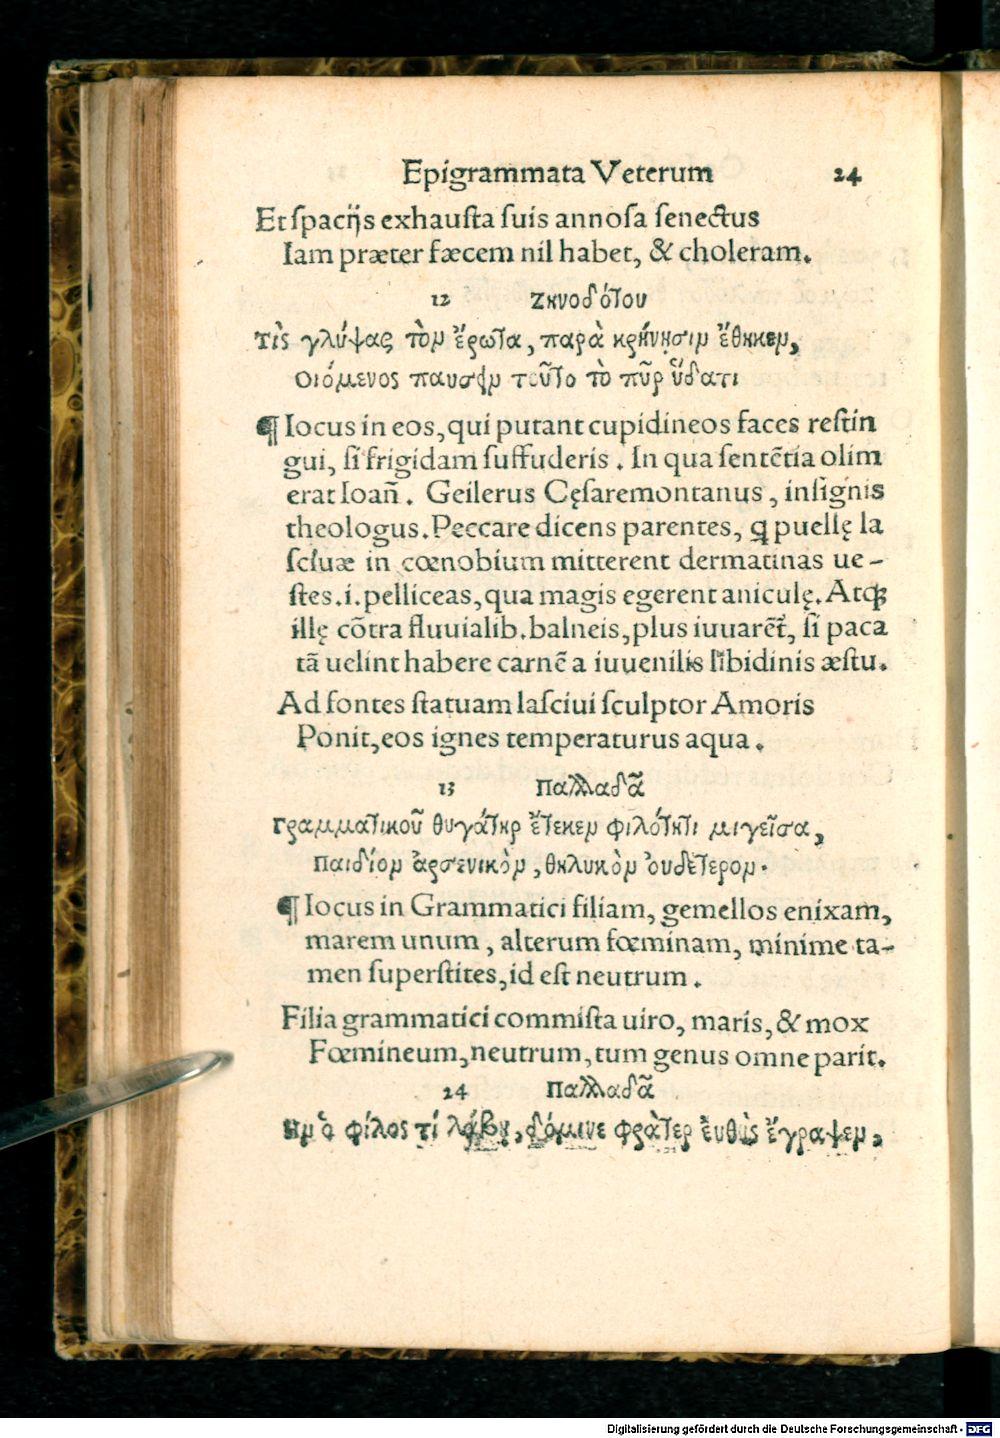 Epigrammata Veterum 24
Et ſpacijs exhauſta ſuis annoſa ſenectus
Iam præter fæcem nil habet, & choleram.
12 ΖΗΝΟδότου
Τὶς γλύψας τὸν ἔρωτα, παρὰ κρήνησιν ἔθηκεν,
Οιόμενος παυσὶν τοῦτο τὸ πῦρ ὕδατι
¶ Iocus in eos, qui putant cupidineos faces reſtin
gui, ſi frigidam ſuffuderis. In qua ſentẽtia olim
erat Ioañ. Geilerus Cęſaremontanus, inſignis
theologus. Peccare dicens parentes, ꝙ puellę la
ſciuæ in cœnobium mitterent dermatinas ue-
ſtes.i.pelliceas, qua magis egerent aniculę. Atqꝫ
illę cõtra fluuialib. balneis, plus iuuarẽt, ſi paca
tã uelint habere carnẽ a iuuenilis libidinis æſtu.
Ad fontes ſtatuam laſciui ſculptor Amoris
Ponit, eos ignes temperaturus aqua.
13 Παλλαδᾶ
Γραμματικοῦ θυγάτηρ ἔτεκεν φιλότητι μιγεῖσα,
Παιδίον ἀρσενικὸν, θηλυκὸν ὀυδέτερον.
¶ Iocus in Grammatici filiam, gemellos enixam,
marem unum, alterum fœminam, minime ta-
men ſuperſtites, id eſt neutrum.
Filia grammatici commiſta uiro, maris, & mox
Fœmineum, neutrum, tum genus omne parit.
24 Παλλαδᾶ
Ην ὁ φίλος τί λάβῃ, δόμινε φράτερ ἐυθὺς ἔγραψεν,
Digitalisierung gefördert durch die Deutsche Forschungsgemeinschaft - DFG